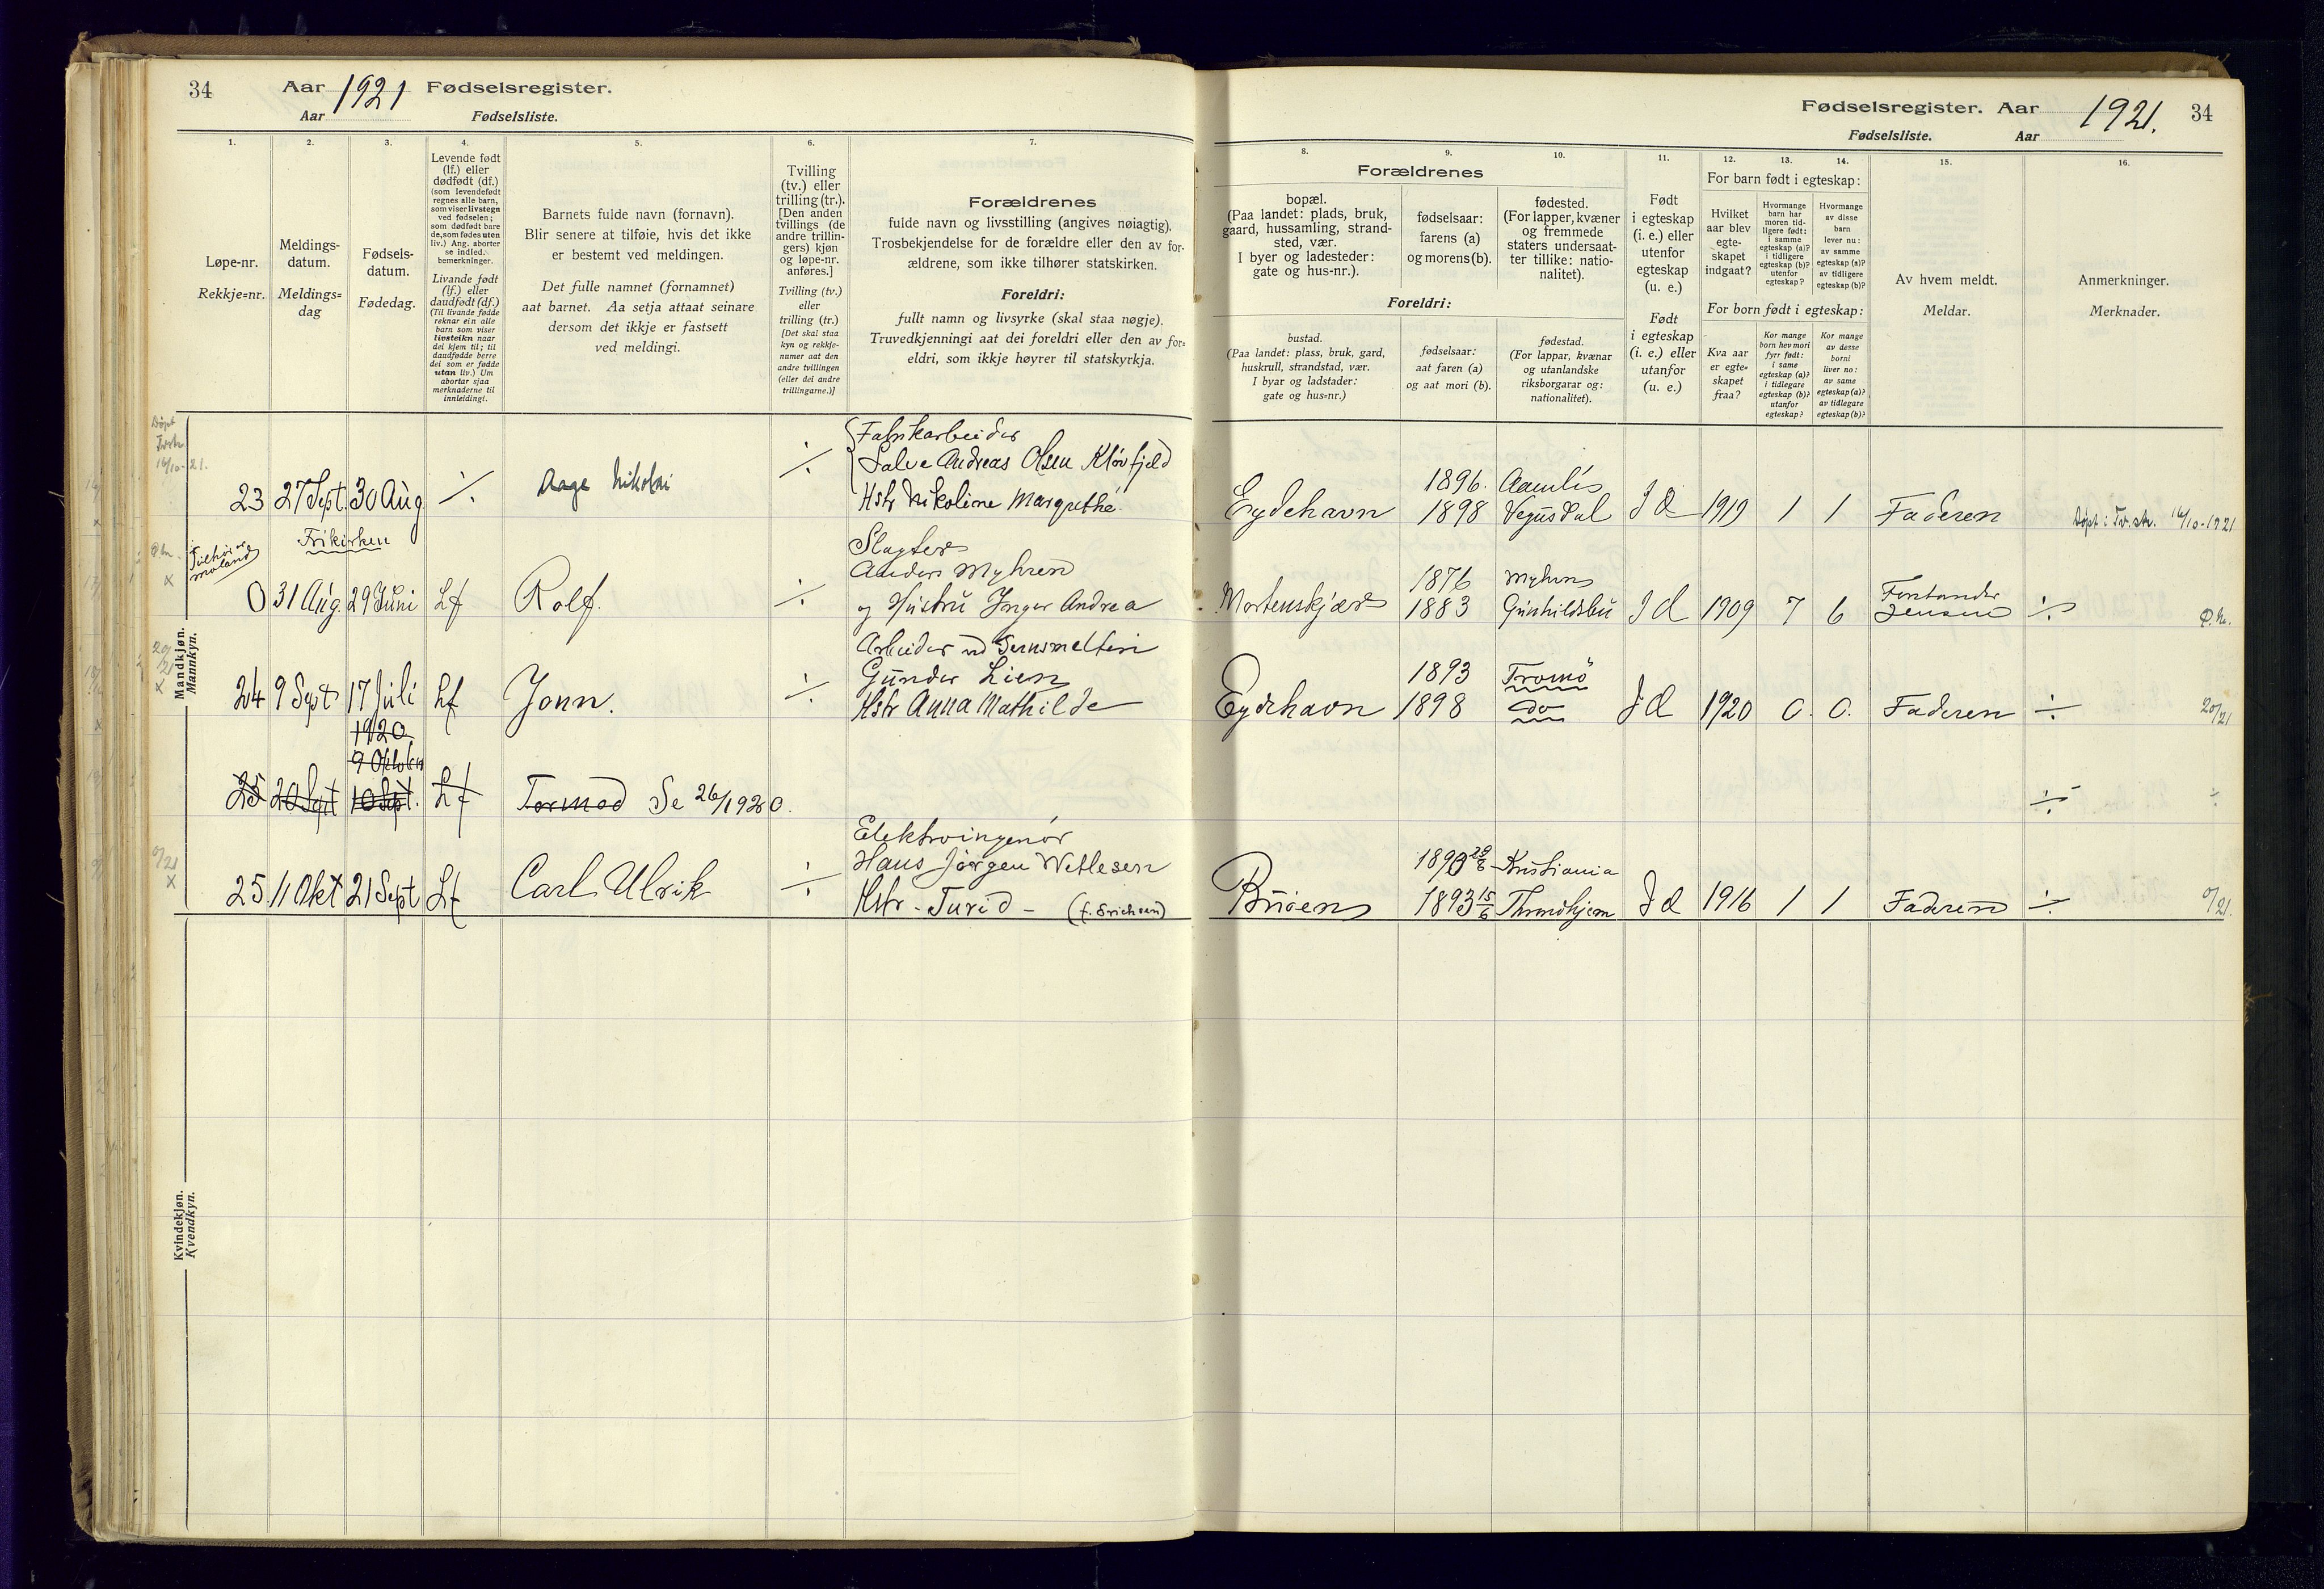 34 Aar 1921 Fødselsregister.
Aar Fødselsliste.
Fødselsregister. Aar 1921. 34
Fødselsliste. Aar
1.
Løpe-nr.
Rekkje=nr.
2.
Meldings-
datum.
Meldings=
dag
3.
Fødsels-
datum.
Fødedag.
4.
Levende født
(lf.) eller
dødfødt (df.)
(som levendefødt
regnes alle barn,
som viser livstegn
ved fødselen;
som dødfødt bare
de, som fødes uten
liv.) Ang. aborter
se indled.
bemerkninger.
Livande født
(lf.) eller
daudfødt (df.)
(Til livande fødde
reknar ein alle
barn som viser
livsteikn naar
dei kjem til; til
daudfødde berre
dei som er fødde
utan liv.) Um
abortar sjaa
merknaderne til
innleidingi.
5.
Barnets fulde navn (fornavn).
Blir senere at tilføie, hvis det ikke
er bestemt ved meldingen.
Det fulle namnet (fornamnet)
aat barnet. Aa setja attaat seinare
dersom det ikkje er fastsett
ved meldingi.
6.
Tvilling
(tv.) eller
trilling (tr.).
[Den anden
tvillings (de
andre trillin-
gers) kjøn
og løpe-nr.
anføres.]
Tvilling (tv.)
eller
trilling (tr.)
[Det skal staa
kyn og rekkje-
numer aat den
andre tvillingen
(eller dei andre
trillingarne.)]
7.
Forældrenes
fulde navn og livsstilling (angives nøiagtig).
Trosbekjendelse for de forældre eller den av for-
ældrene, som ikke tilhører statskirken.
Foreldri:
fullt namn og livsyrke (skal staa nøgje).
Truvedkjenningi aat dei foreldri eller den av for=
eldri, som ikkje høyrer til statskyrkja.
Forældrenes
8.
bopæl.
(Paa landet: plads, bruk,
gaard, hussamling, strand-
sted, vær.
I byer og ladesteder:
gate og hus-nr.).
9.
fødselsaar:
farens (a)
og morens (b).
10.
fødested.
(For lapper, kvæner
og fremmede
staters undersaat-
ter tillike: natio-
nalitet).
Foreldri:
bustad.
(Paa landet: plass, bruk, gard,
huskrull, strandstad, vær.
I byar og ladstader:
gate og hus=nr.)
fødselsaar:
aat faren (a)
og aat mori (b).
fødestad.
(For lappar, kvænar
og utanlandske
riksborgarar og:
nationalitet).
11.
Født
i egteskap
(i. e.) eller
utenfor
egteskap
(u. e.)
Født
i egteskap
(i. e.) eller
utanfor
(u. e.)
12. 13. 14.
For barn født i egteskap:
Hvilket
aar blev
egte-
skapet
indgaat?
Hvormange
barn har
moren tid-
ligere født:
i samme
egteskap (a)?
i tidligere
egteskap (b)?
utenfor
egteskap?
Hvormange
av disse
barn
lever nu:
av samme
egteskap (a)?
av tidligere
egteskap (b)?
For born født i egteskap:
Kva aar
er egte=
skapet
fraa?
Kor mange
born hev mori
fyrr født:
i same
egteskap (a)?
i tidlegare
egteskap (b)?
utanfor
egteskap?
Kor mange
av desse
borni
liver no:
av same
egteskap (a)?
av tidlegare
egteskap (b)?
15.
Av hvem meldt.
Meldar.
16.
Anmerkninger.
Merknader.
Mandkjøn.
Mannkyn.
Døpt
16/10-21.
Fabrikarbeider
Salve Andreas Olsen Kløvfjeld
Hstr Nikoline Margrethe
23 27 Sept. 30 Aug ÷ Aage Nikolai ÷
1896. Aamlis
Eydehavn 1898 Vegusdal I E 1919 1 1 Faderen Døpt i Tv.str. 16/10-1921
Frikirken
Slagter
Anders Myhren
og Hustru Inger Andrea
0 31 Aug. 29 Juni Lf Rolf. ÷
1876 Myhren
Mortenskjær 1883 Gunhildsbu I E 1909 7 6 Forstander Jensen ÷
Arbeider ved Jernsmelten
Gunder Lien
Hstr Anna Mathilde
24 9 Sept 17 Juli Lf Jonn. ÷
1893 Tromø
Eydehavn 1898 do I E 1920 0. 0. Faderen ÷ 20/21
1920
9 Oktober
25 20 Sept 10 Sept. Lf Tormod Se 26/1920. ÷
Elektroingenør
Hans Jørgen Wetlesen
Hstr - Turid - (f. Erichsen)
25. 11 Okt 21 Sept Lf Carl Ulrik ÷
1890 Kristiania
Buøen 1893 15/6 Throndhjem I E 1916 1 1 Faderen ÷ 0/21.
Kvindekjøn.
Kvendkyn.